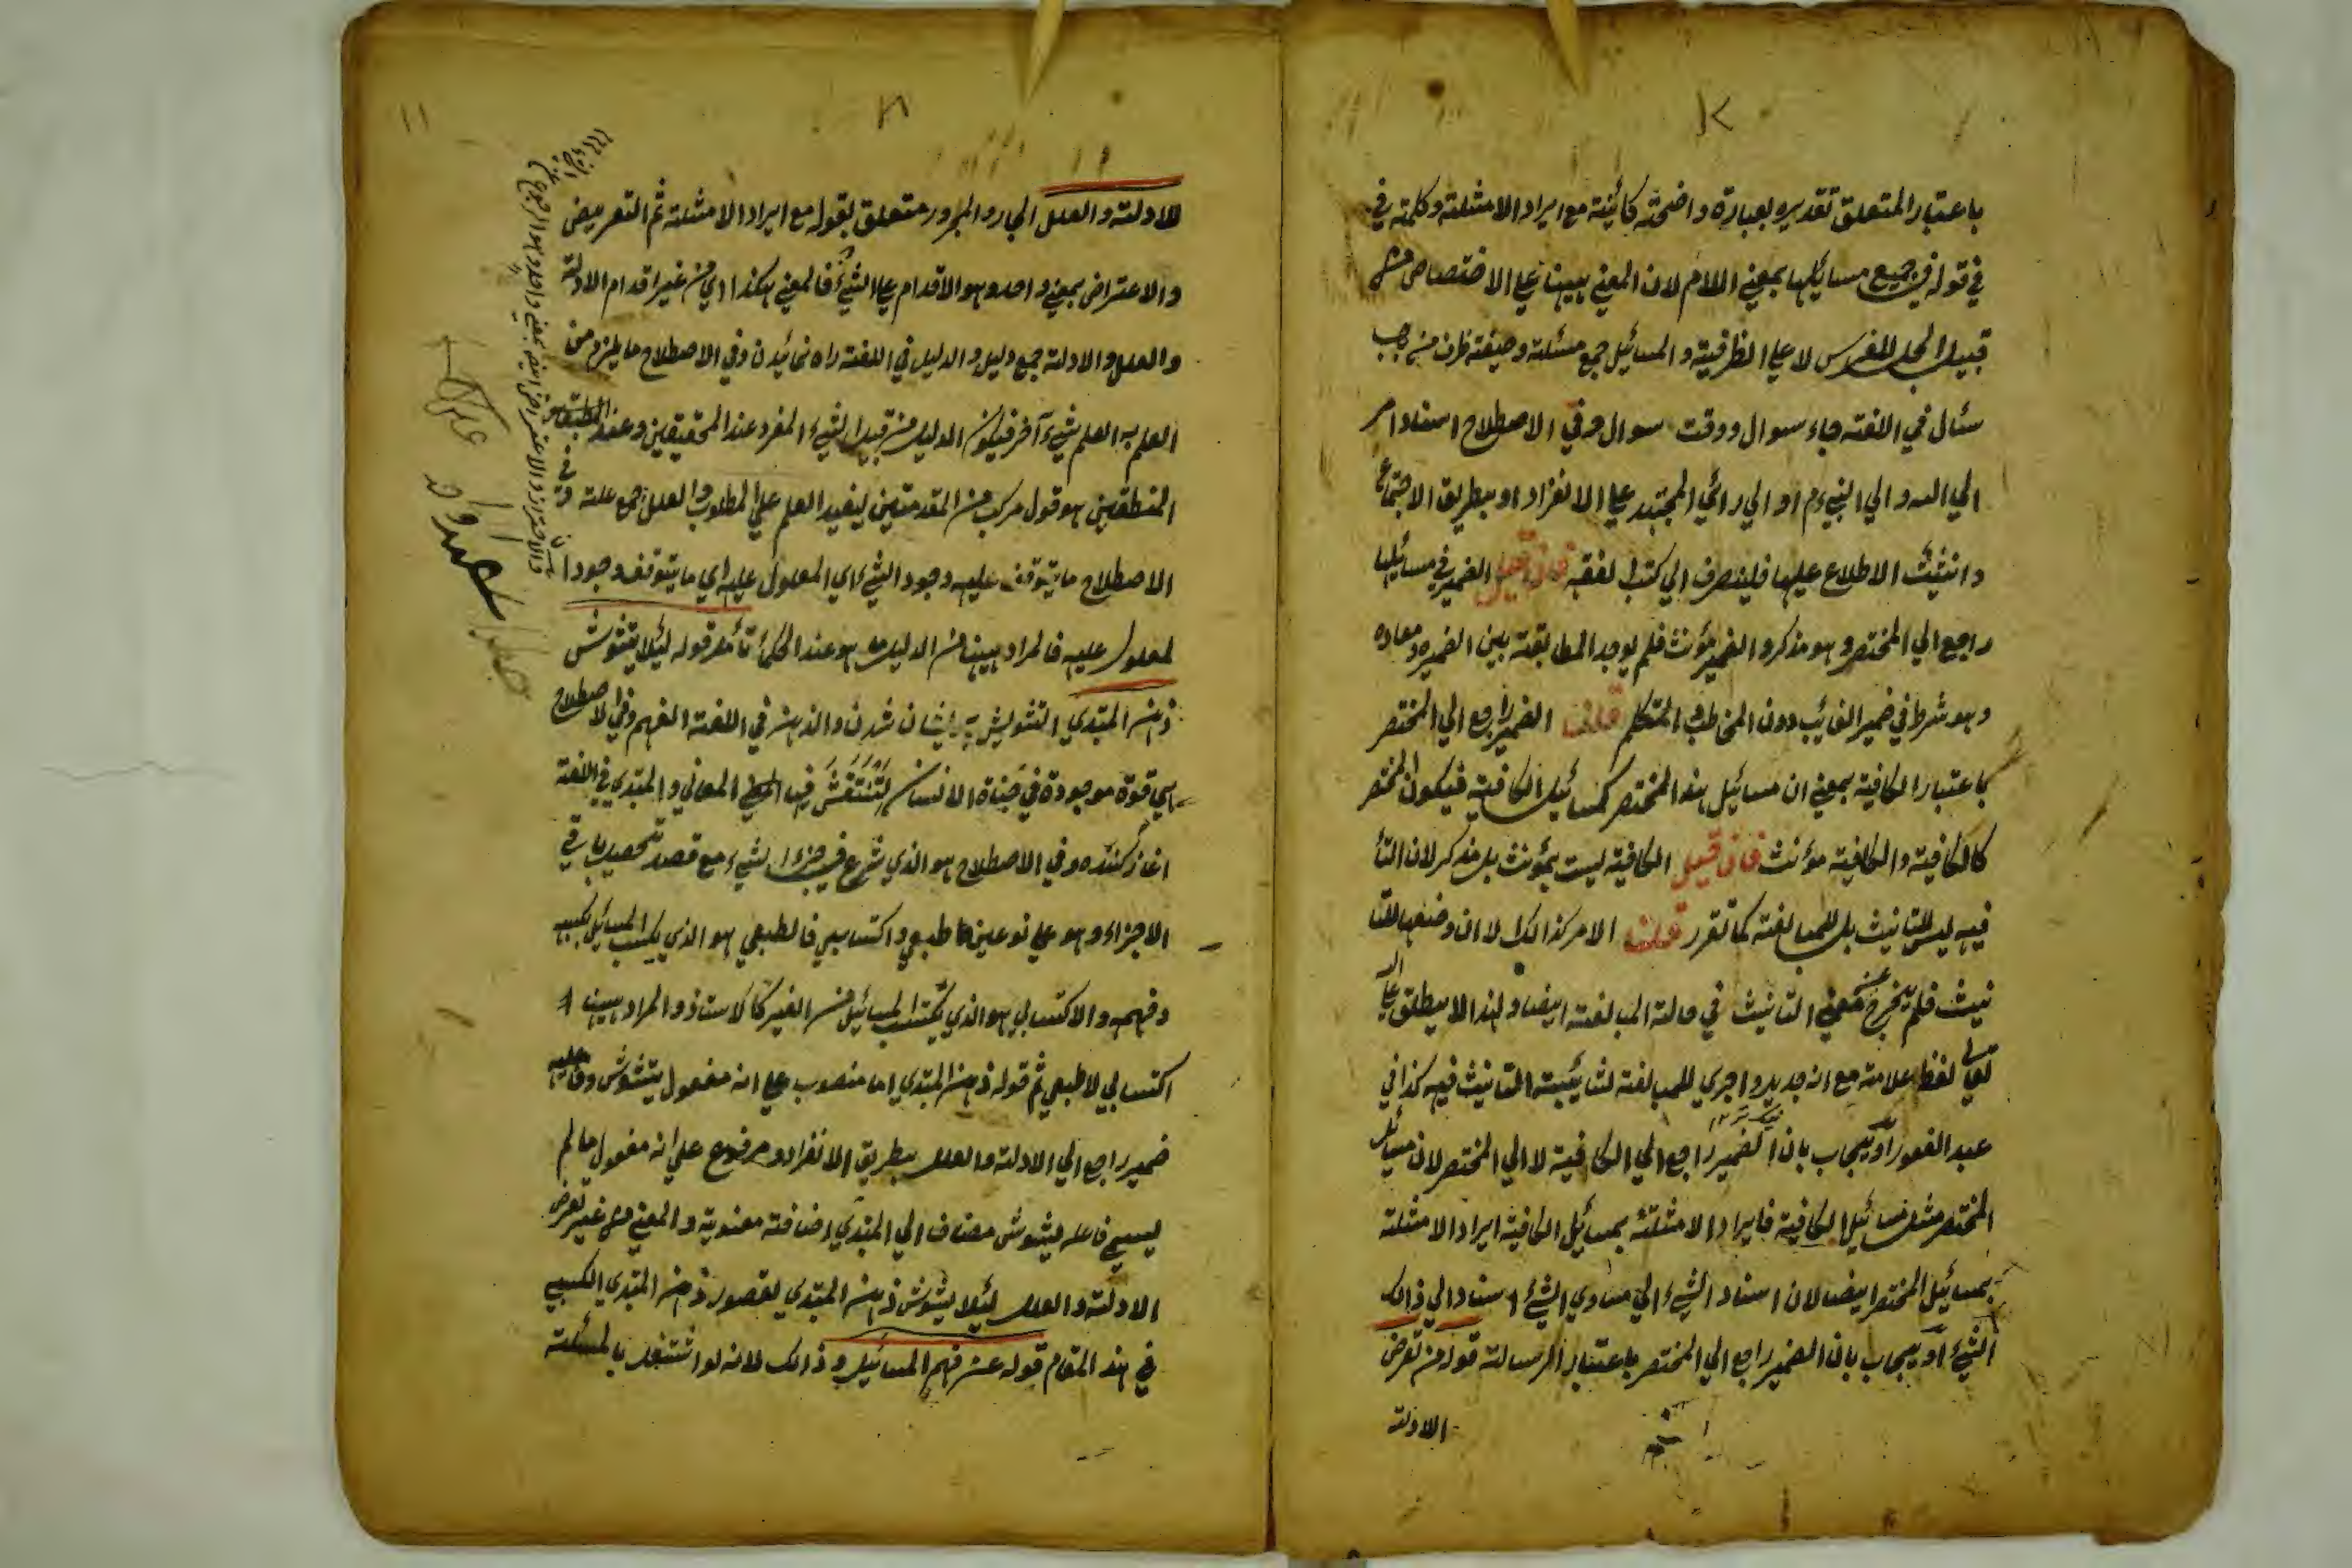 باعتبار المتعلق تقديره بعبارة واضحة كائنة مع ايراد الامثلة وكلمة في
في قوله في جميع مسائلها بمعني اللام لان المعني ههنا علي الاختصاص من
قبيل الجل للفرس لا علي الظرفية والمسائل جمع مسئلة وصيغة ظرف من باب
سئال في اللغة جاء سوال ووقت سوال وفي الاصطلاح اسناد امر
الي الله والي النبي م او الي رائي المجتهد علي الانفراد او بطريق الاجتماع
وان شئت الاطلاع عليها فلينصرف الي كتب الفقه فان قيل الضمير في مسائلها
راجع الي المختصر وهو مذكر والضمير مؤنث فلم يوجد المطابقة بين الضمير ومعاده
وهو شرط في ضمير الغائب دون المخاطب والمتكلم قلنا الضمير راجع الي المختصر
باعتبار الكافية بمعني ان مسائل هذا المختصر كمسائيل الكافية فيكون المختصر
كالكافية والكافية مؤنث فان قيل الكافية ليست بمؤنث بل مذكر لان التاء
فيه ليس للتانيث بل للمبالغة كما تقرر قلنا الامر كذالك لا ان وضعها للتا
نيث فلم يخرج عن معني التانيث في حالة المبالغة ايضا ولهذا لا يطلق علي الله
تعالي لفظ علامة مع انه جدير واجري للمبالغة لشائبة التانيث فيه كذا في
عبد الغفور او يجاب بان الضمير راجع الي الكافية لا الي المختصر لان مسائل
المختصر مثل مسائيل الكافية فايراد الامثلة بمسائيل الكافية ايراد الامثلة
بمسائيل المختصر ايضا لان اسناد الشيء الي مساوي الشيء اسناد الي ذالك
الشيء او يجاب بان الضمير راجع الي المختصر باعتبار الرسالة قوله من تعرض
الادلة
للادلة والعلل الجار والمجرور متعلق بقوله مع ايراد الامثلة ثم التعريض
والاعتراض بمعني واحد وهو الاقدام علي الشيء فالمعني هكذا اي من غير اقدام الادلة
والعلل والادلة جمع دليل والدليل في اللغة راه نمائيدن وفي الاصطلاح ما يلزم من
العلم به العلم بشيء آخر فيكون الدليل من قبيل الشيء المفرد عند المحققين وعند
المنطقين هو قول مركب من المقدمتين ليفيد العلم علي المطلوب والعلل جمع علة وفي
الاصطلاح ما يتوقف عليه وجود الشيء اي المعلول عليه اي ما يتوقف وجود ا
لمعلول عليه فالمراد ههنا من الدليل ما هو عند الحكماء تأمل قوله لئلا يتشوش
ذهن المبتدي التشويش پريشان شدن والذهن في اللغة الفهم وفي الاصطلاح
هي قوة موجودة في جنان الانسان لتنتقش فيها المعاني والمبتدي في اللغة
اغاز كننده وفي الاصطلاح هو الذي شرع في جزء الشيء مع قصد تحصيل باقي
الاجزاء وهو علي نوعين طبعي واكتسابي فالطبعي هو الذي يكسب المسائيل بكسبه
وفهمه والاكتسابي هو الذي يكتسب المسائيل من الغير كالاستاذ والمراد ههنا
اكتسابي لا طبعي ثم قوله ذهن المبتدي اما منصوب علي انه مفعول يتشوش وفاعله
ضمير راجع الي الادلة والعلل بطريق الانفراد ومرفوع علي انه مفعول ما لم
يسم فاعله يشوش مضاف الي المبتدي اضافة معنوية والمعني من غير تعرض
الادلة والعلل لئلا يشوش ذهن المبتدي لقصور ذهن المبتدي الكسبي
في هذا المقام قوله عن فهم المسائيل وذالك لانه لو اشتغل بالمسئلة